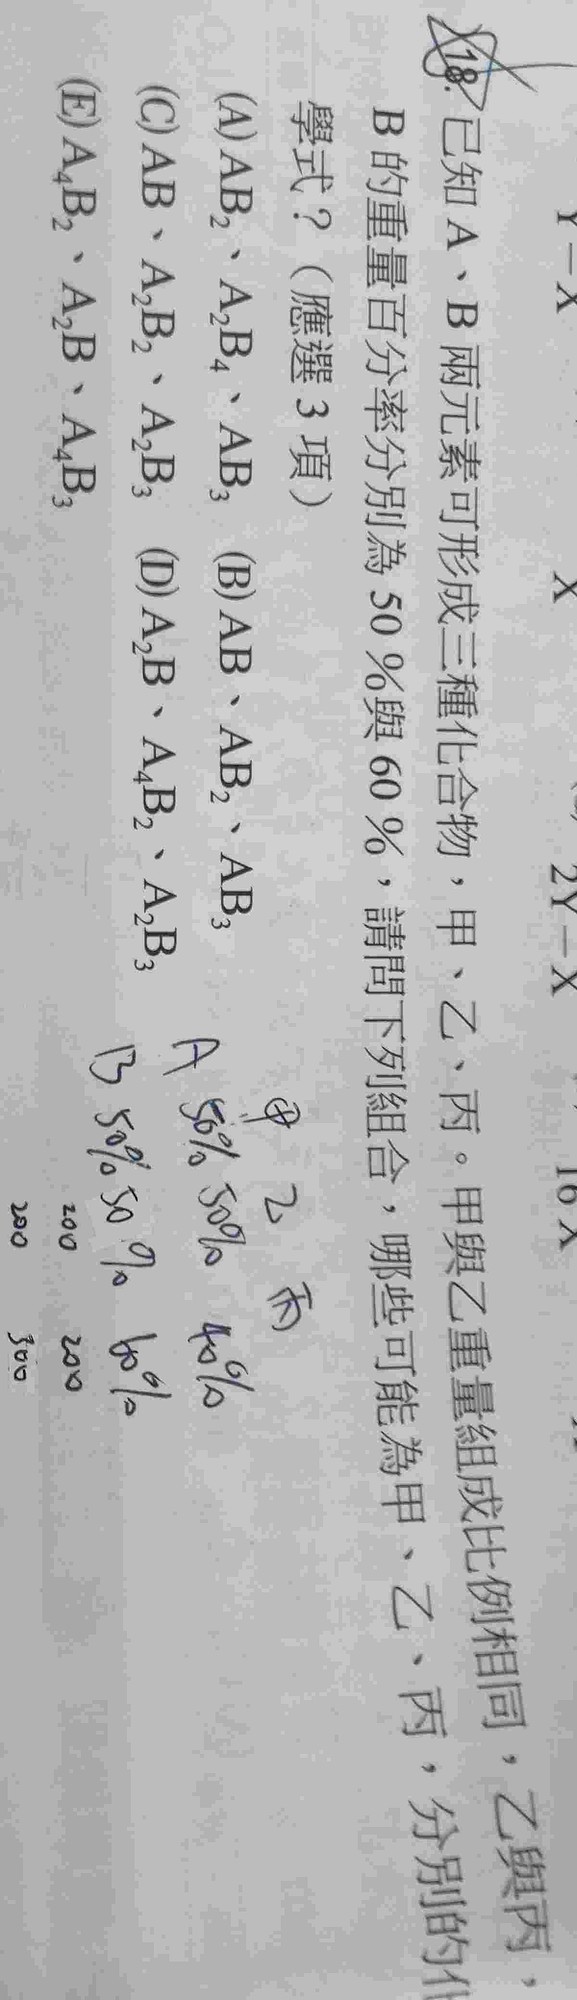 Y－X
X
2Y－X
16 X
18. 已知 A、B 兩元素可形成三種化合物，甲、乙、丙。甲與乙重量組成比例相同，乙與丙，
B 的重量百分率分別為 50 %與 60 %，請問下列組合，哪些可能為甲、乙、丙，分別的化
學式？（應選 3 項）
(A) AB₂、A₂B₄、AB₃ (B) AB、AB₂、AB₃
(C) AB、A₂B₂、A₂B₃ (D) A₂B、A₄B₂、A₂B₃
(E) A₄B₂、A₂B、A₄B₃
甲 乙 丙
A 50% 50% 40%
B 50% 50% 60%
200 200
200 300